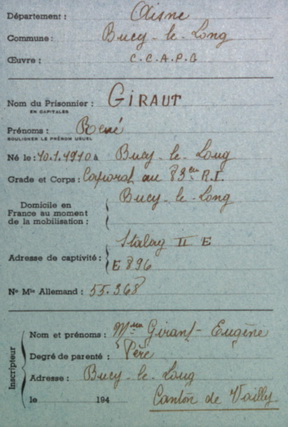 Département : Aisne
Commune : Bucy-le-Long
Œuvre : C.C.A.P.G
Nom du Prisonnier : GIRAUT
EN CAPITALES
Prénoms : René
SOULIGNER LE PRÉNOM USUEL
Né le : 10.1.1910 à Bucy-le-Long
Grade et Corps : Caporal au 83eme R.I.
Domicile en
France au moment
de la mobilisation : Bucy-le-Long
Stalag II E
Adresse de captivité : E 896
No Mle Allemand : 55.368
Inscripteur
Nom et prénoms : Mr Giraut Eugène
Degré de parenté : Père
Adresse : Bucy-le-Long
le 194 Canton de Vailly